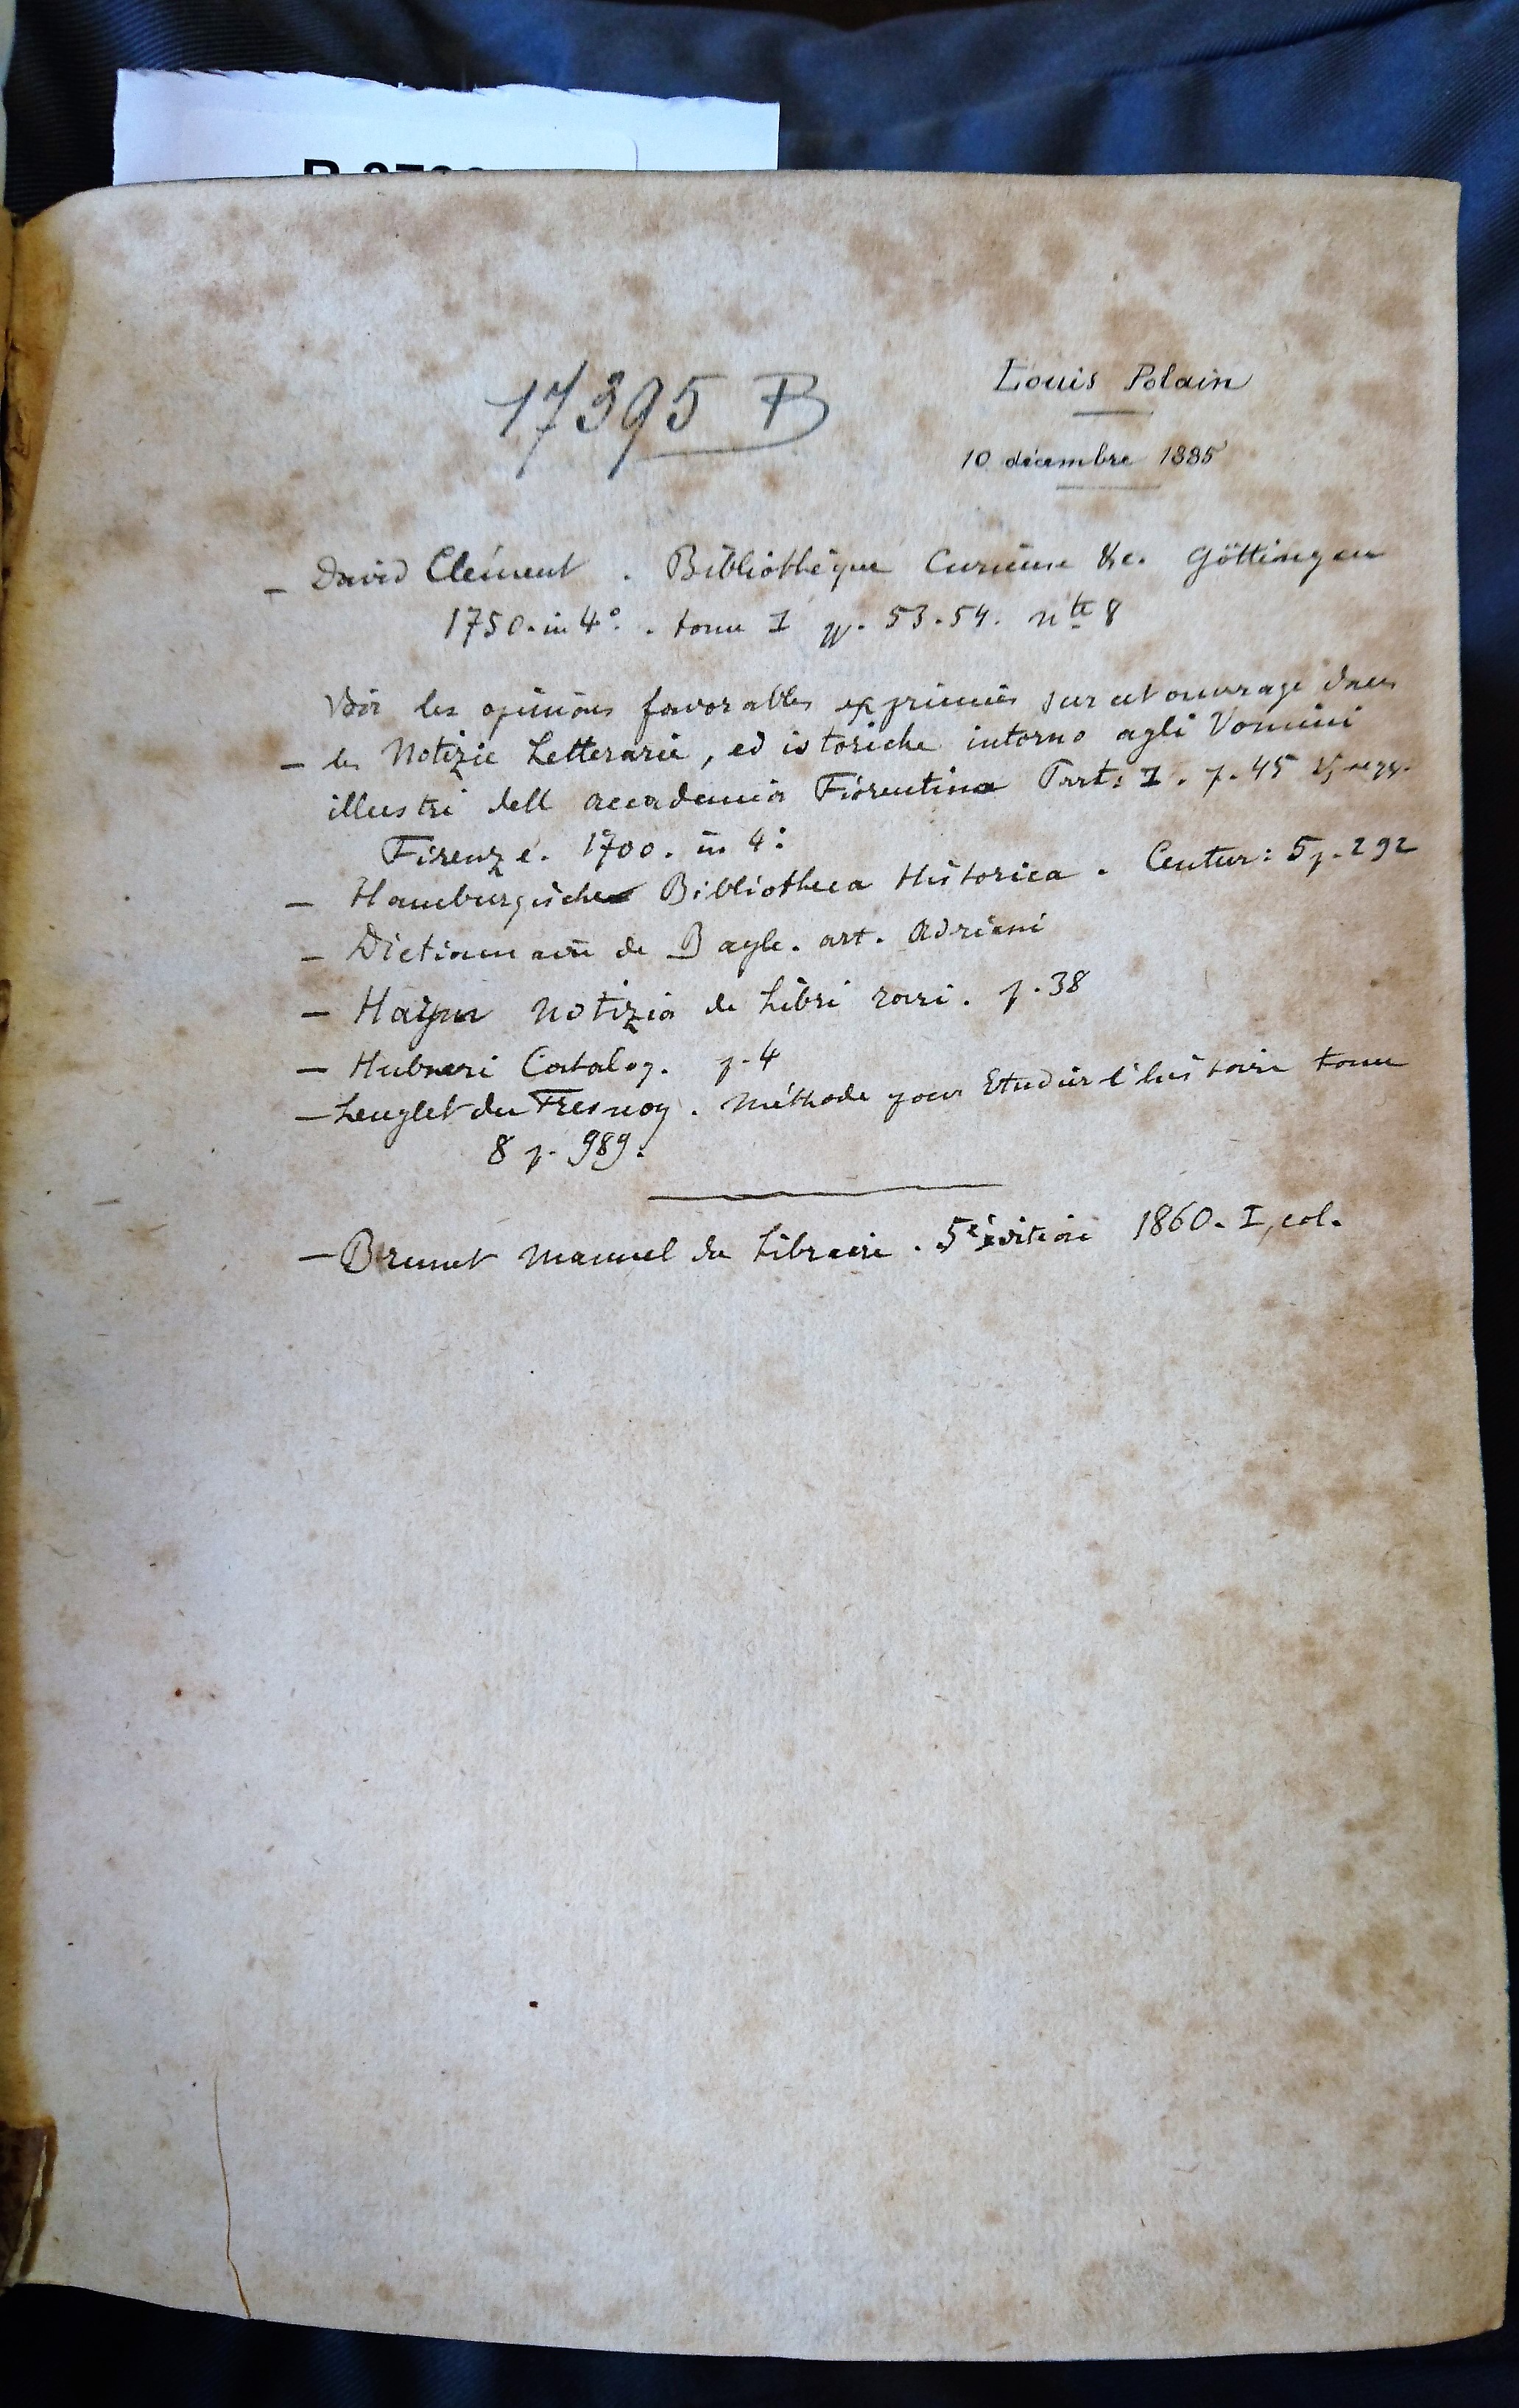 17395 B
Louis Polain
10 décembre 1885
- David Clément . Bibliothèque Curieuse &c. Göttingen
1750. in 4° . tome I pp. 53.54. nte 8
Voir les opinions favorables exprimées sur cet ouvrage dans
- les Notizie Letterarie, ed istoriche intorno agli Vomini
illustri dell accademia Fiorentina Part: I. p. 45
Firenze. 1700. in 4°
- Hamburgische Bibliotheca Historica . Centur: 5 p. 292
- Dictionnaire de Bayle. art. Adriani
- Haym Notizia de Libri rari. p. 38
- Hubneri Catalog. p. 4
- Lenglet du Fresnoy. Méthode pour Etudier l'histoire tome
8 p. 989.
- Brunet Manuel du Libraire . 5e édition 1860. I, col.